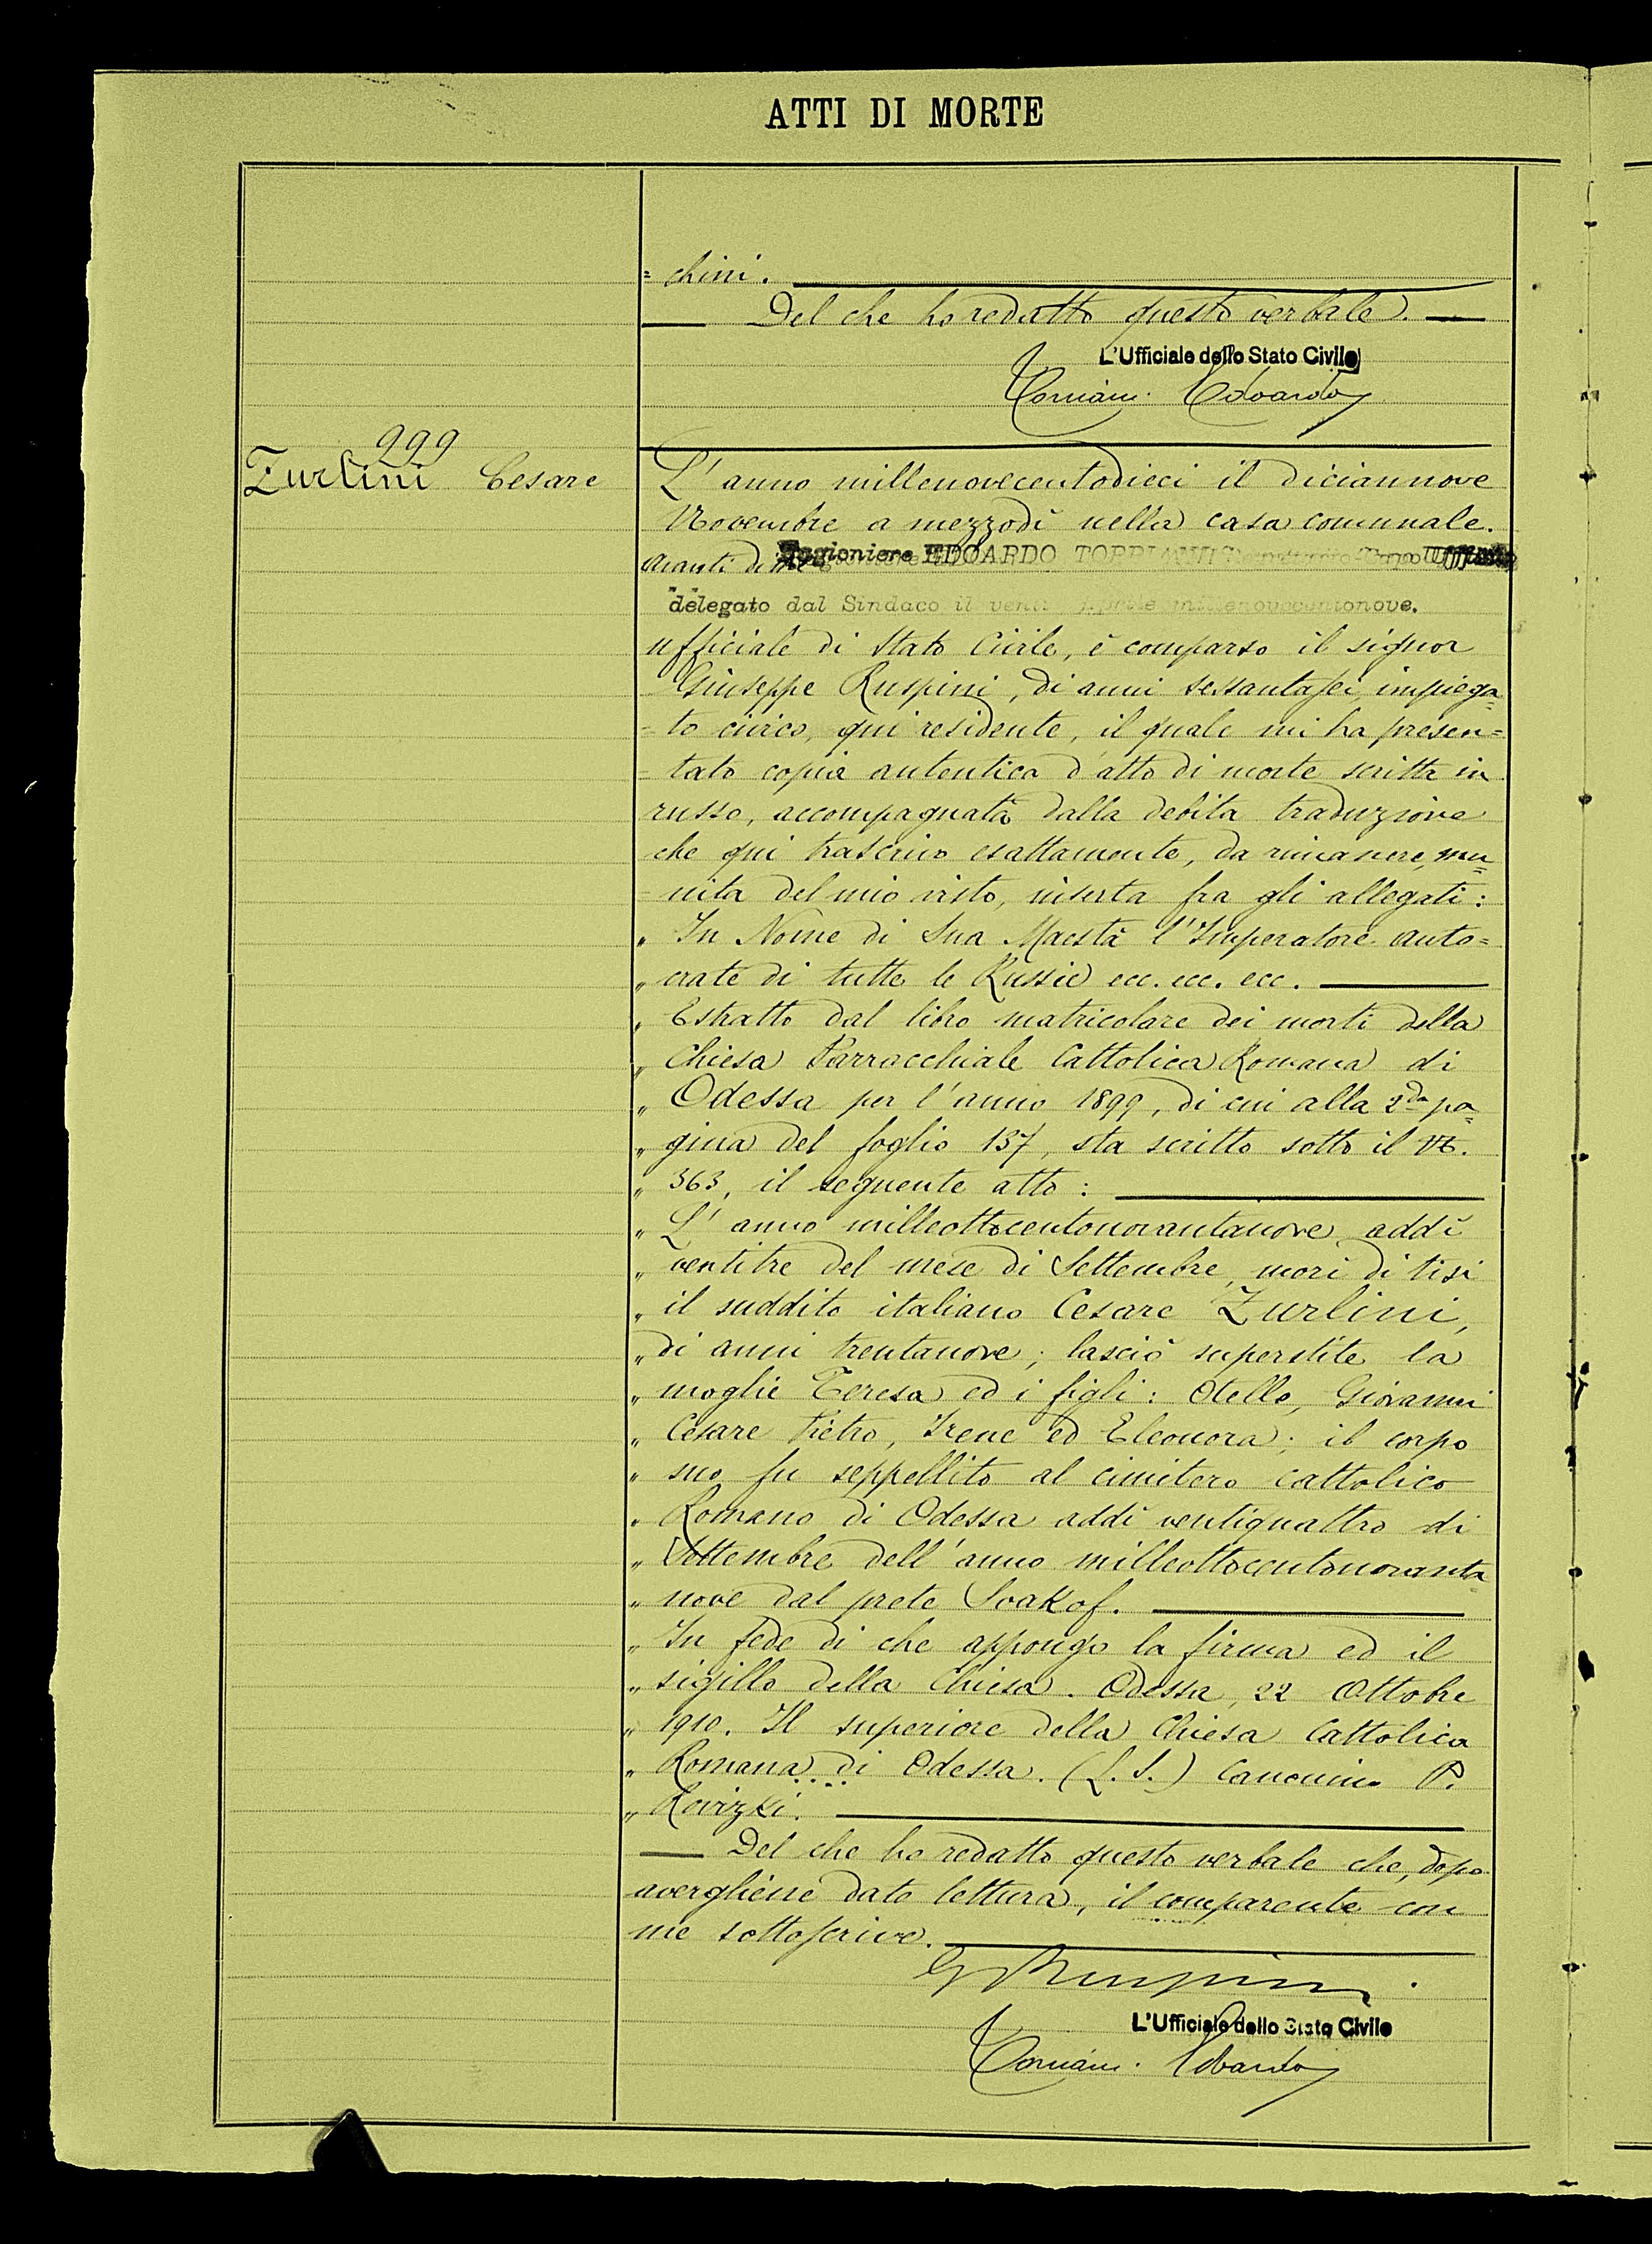 ATTI DI MORTE
= chini.
Del che ho redatto questo verbale.
L'Ufficiale dello Stato Civile
Edoardo
999
Zurlini Cesare
L' anno millenovecentodieci il diciannove
Novembre a mezzodì nella casa comunale.
Avanti di me Ragioniere EDOARDO
delegato dal Sindaco il venti Aprile millenovecentonove.
ufficiale di Stato Civile, è comparso il signor
Giuseppe Ruspini, di anni sessantasei, impiega=
= to civico, qui residente, il quale mi ha presen=
= tato copia autentica d'atto di morte scritta in
russo, accompagnata dalla debita traduzione
che qui trascrivo esattamente, da rimanere, mu=
= nita del mio visto, inserta fra gli allegati:
„ In Nome di Sua Maestà l'Imperatore auto=
„ crate di tutte le Russie ecc. ecc. ecc.
„ Estratto dal libro matricolare dei morti della
„ Chiesa Parrocchiale Cattolica Romana di
„ Odessa per l'anno 1899, di cui alla 2da pa=
„ gina del foglio 137, sta scritto sotto il N.
„ 363, il seguente atto:
„ L' anno milleottocentonovantanove addì
„ ventitre del mese di Settembre, morì di tisi
„ il suddito italiano Cesare Zurlini,
„ di anni trentanove; lasciò superstite la
„ moglie Teresa ed i figli: Otello, Giovanni
„ Cesare Pietro, Irene ed Eleonora; il corpo
„ suo fu seppellito al cimitero cattolico
„ Romano di Odessa addì ventiquattro di
„ Settembre dell'anno milleottocentonovanta
„ nove dal prete Svakof.
„ In fede di che appongo la firma ed il
„ sigillo della Chiesa. Odessa, 22 Ottobre
„ 1910. Il superiore della Chiesa Cattolica
„ Romana di Odessa. (L. S.) Canonico P.
„
Del che ho redatto questo verbale che, dopo
avergliene dato lettura, il comparente con
me sottoscrive.
G Ruspini
L'Ufficiale dello Stato Civile
Edoardo